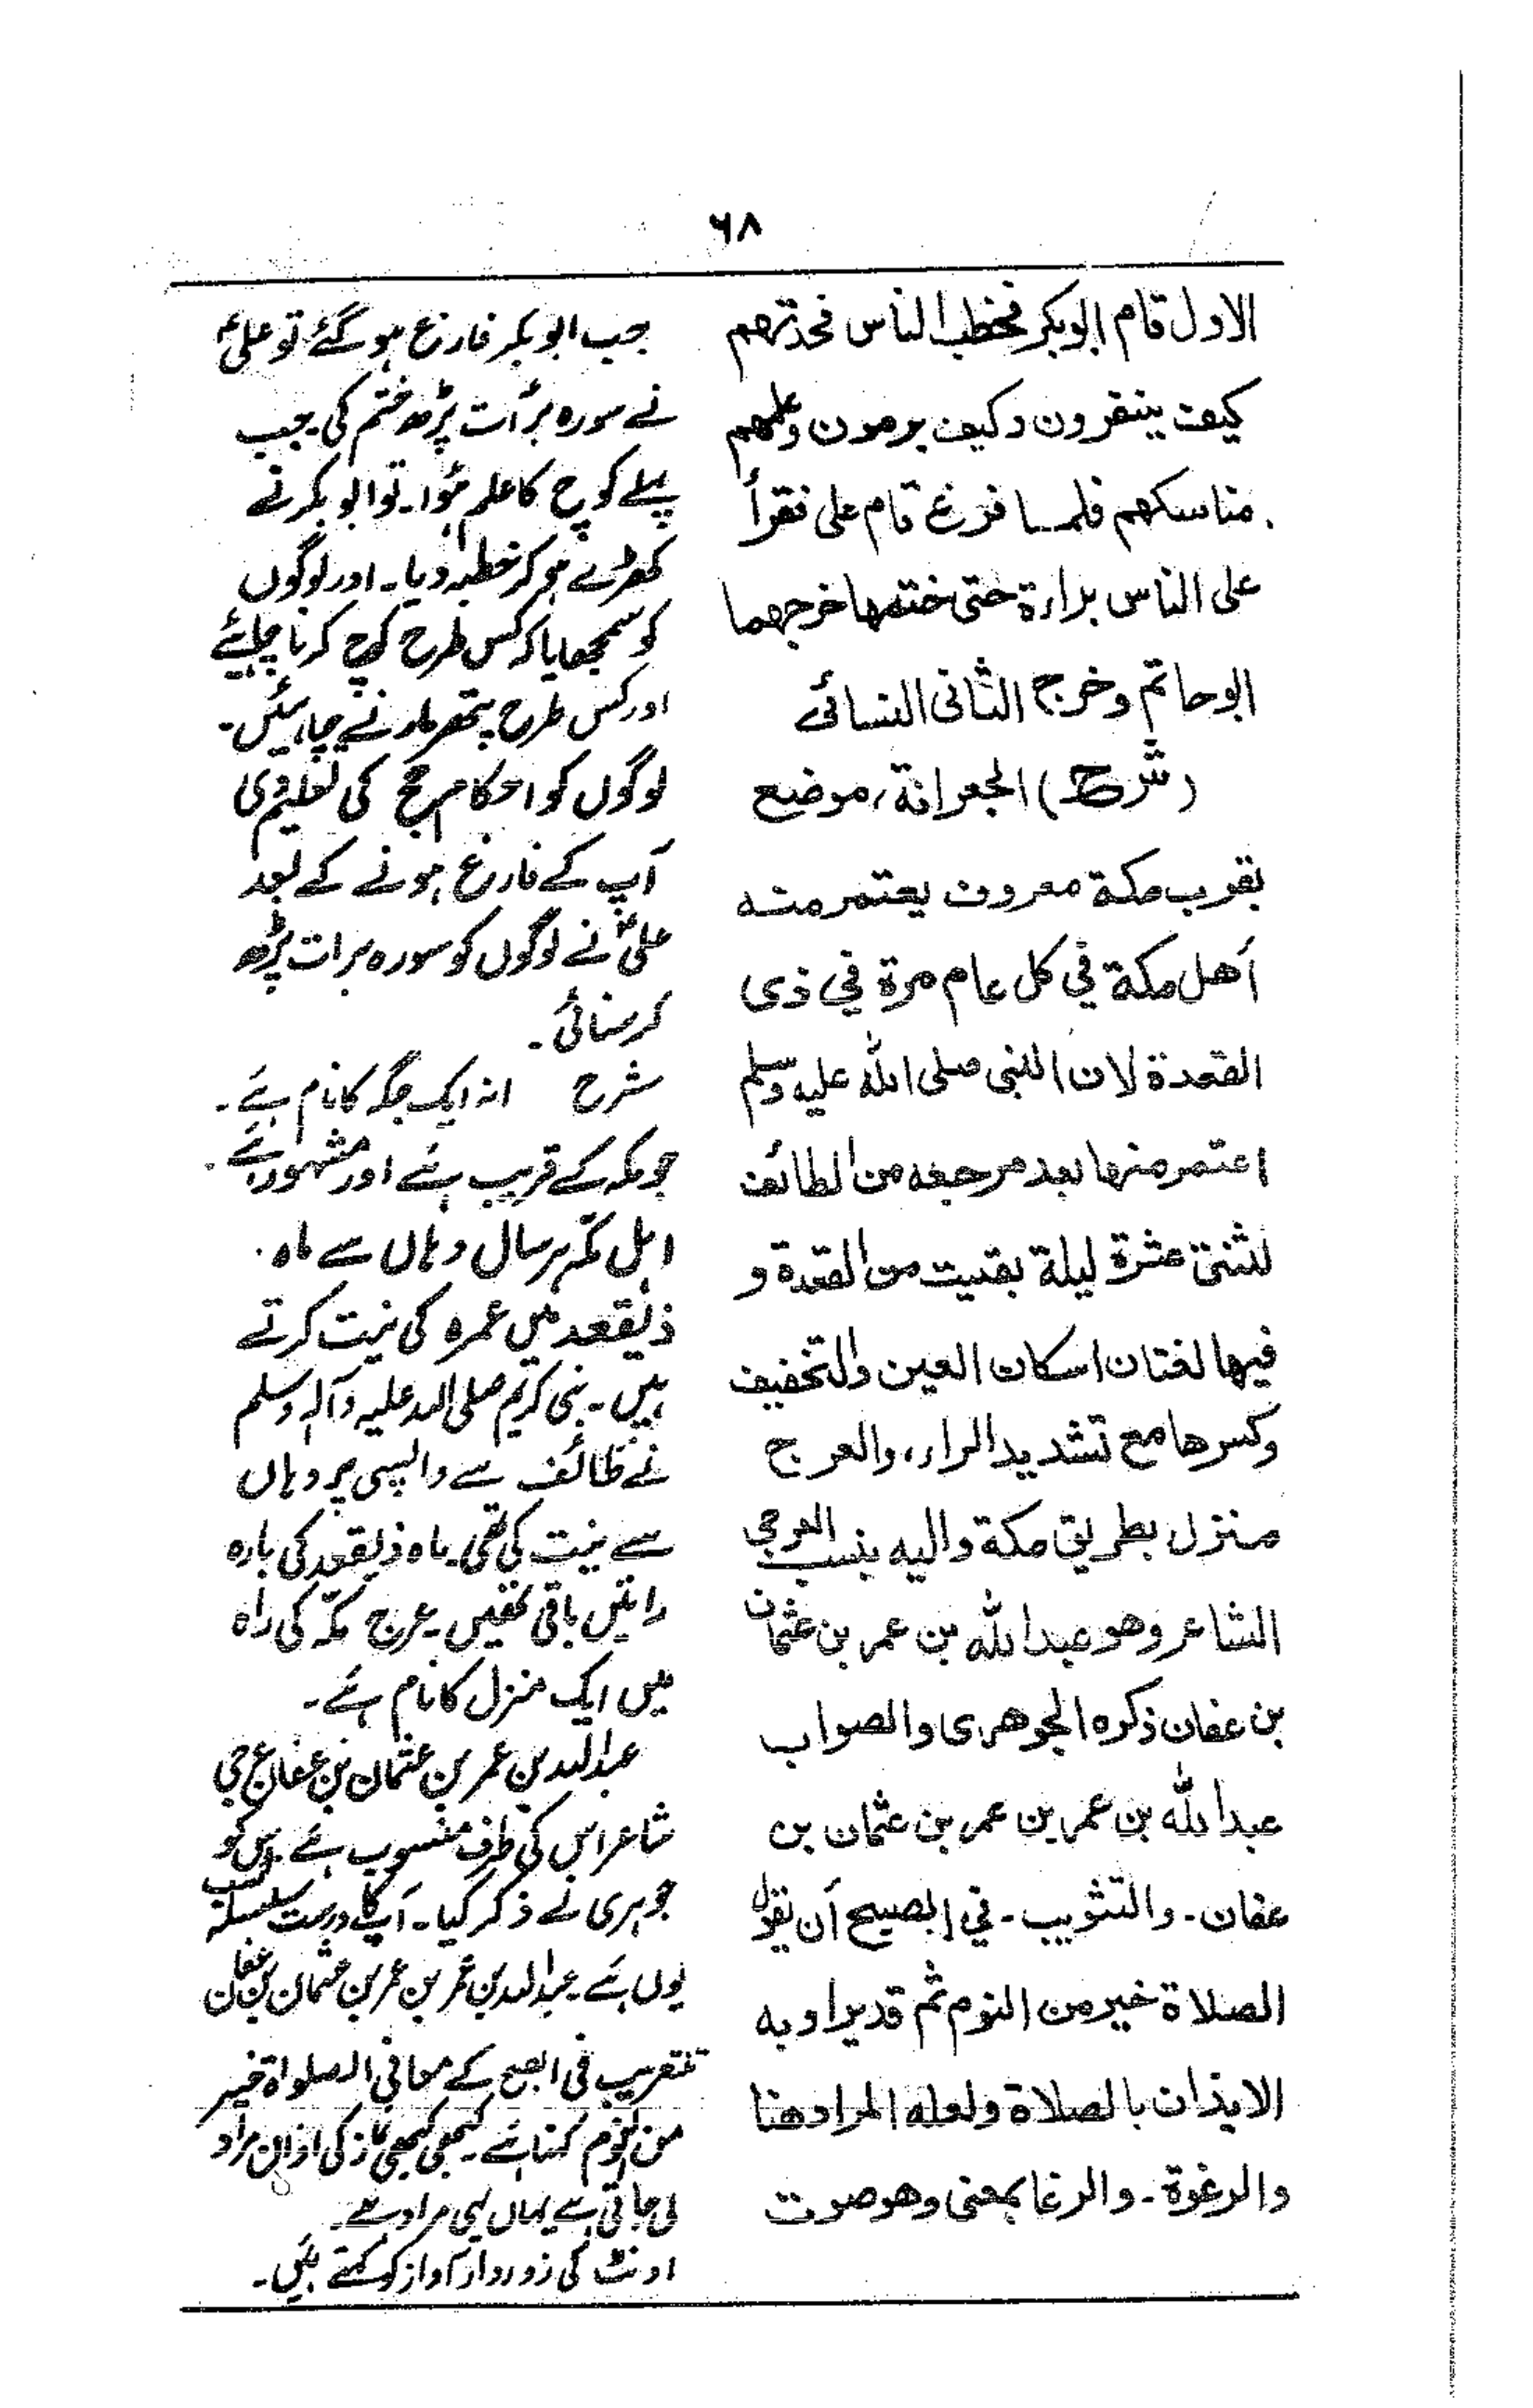 ٦٨
الاول قام ابوبكر فخطب الناس فحدثهم
كيف ينفرون وكيف يرمون وعلمهم
مناسكهم فلما فرغ قام على فقرأ
على الناس براءة حتى ختمها خرجهما
ابوحاتم وخرج الثانى النسائى
(شرح) الجعرانة، موضع
بقرب مكة معروف يعتمر منه
أهل مكة في كل عام مرة في ذى
القعدة لان النبى صلى الله عليه وسلم
اعتمر منها بعد مرجعه من الطائف
لثنتى عشرة ليلة بقيت من القعدة و
فيها لغتان اسكان العين والتخفيف
وكسرها مع تشديد الراء، والعرج
منزل بطريق مكة واليه ينسب العرجى
الشاعر وهو عبدالله بن عمر بن عثمان
بن عفان ذكره الجوهرى والصواب
عبدالله بن عمر بن عمر بن عثمان بن
عفان - والتثويب - في الصبح أن يقول
الصلاة خير من النوم ثم قد يراد به
الايذان بالصلاة ولعله المراد هنا
والرغوة - والرغا بمعنى وهو صوت
جب ابوبکر فارغ ہو گئے تو علیؓ
نے سورہ برأت پڑھ ختم کی۔ جب
پہلے کوچ کا علم ہؤا۔ تو ابوبکر نے
کھڑے ہو کر خطبہ دیا۔ اور لوگوں
کو سمجھایا کہ کس طرح کوچ کرنا چاہیئے
اور کس طرح پتھر مارنے چاہئیں۔
لوگوں کو احکام حج کی تعلیم دی
آپ کے فارغ ہونے کے بعد
علیؓ نے لوگوں کو سورہ برات پڑھ
کر سنائی۔
شرح انہ ایک جگہ کا نام ہے۔
جو مکہ کے قریب ہے اور مشہور ہے۔
اہل مکّہ ہر سال وہاں سے ماہ
ذیقعد میں عمرہ کی نیت کرتے
ہیں۔ نبی کریم صلی اللہ علیہ وآلہ وسلم
نے طائف سے واپسی پر وہاں
سے نیت کی تھی۔ ماہ ذیقعد کی بارہ
راتیں باقی تھیں۔ عرج مکّہ کی راہ
میں ایک منزل کا نام ہے۔
عبداللہ بن عمر بن عثمان بن عفان عرجی
شاعر اس کی طرف منسوب ہے۔ اس کو
جوہری نے ذکر کیا۔ آپ کا درست سلسلہ نسب
یوں ہے۔ عبداللہ بن عمر بن عمر بن عثمان بن عفان
تثویب فی الصبح کے معانی الصلواۃ خیر
من النوم کہنا ہے۔ کبھی کبھی نماز کی اذان مراد
لی جاتی ہے یہاں یہی مراد ہے۔
اونٹ کی زوردار آواز کو کہتے ہیں۔